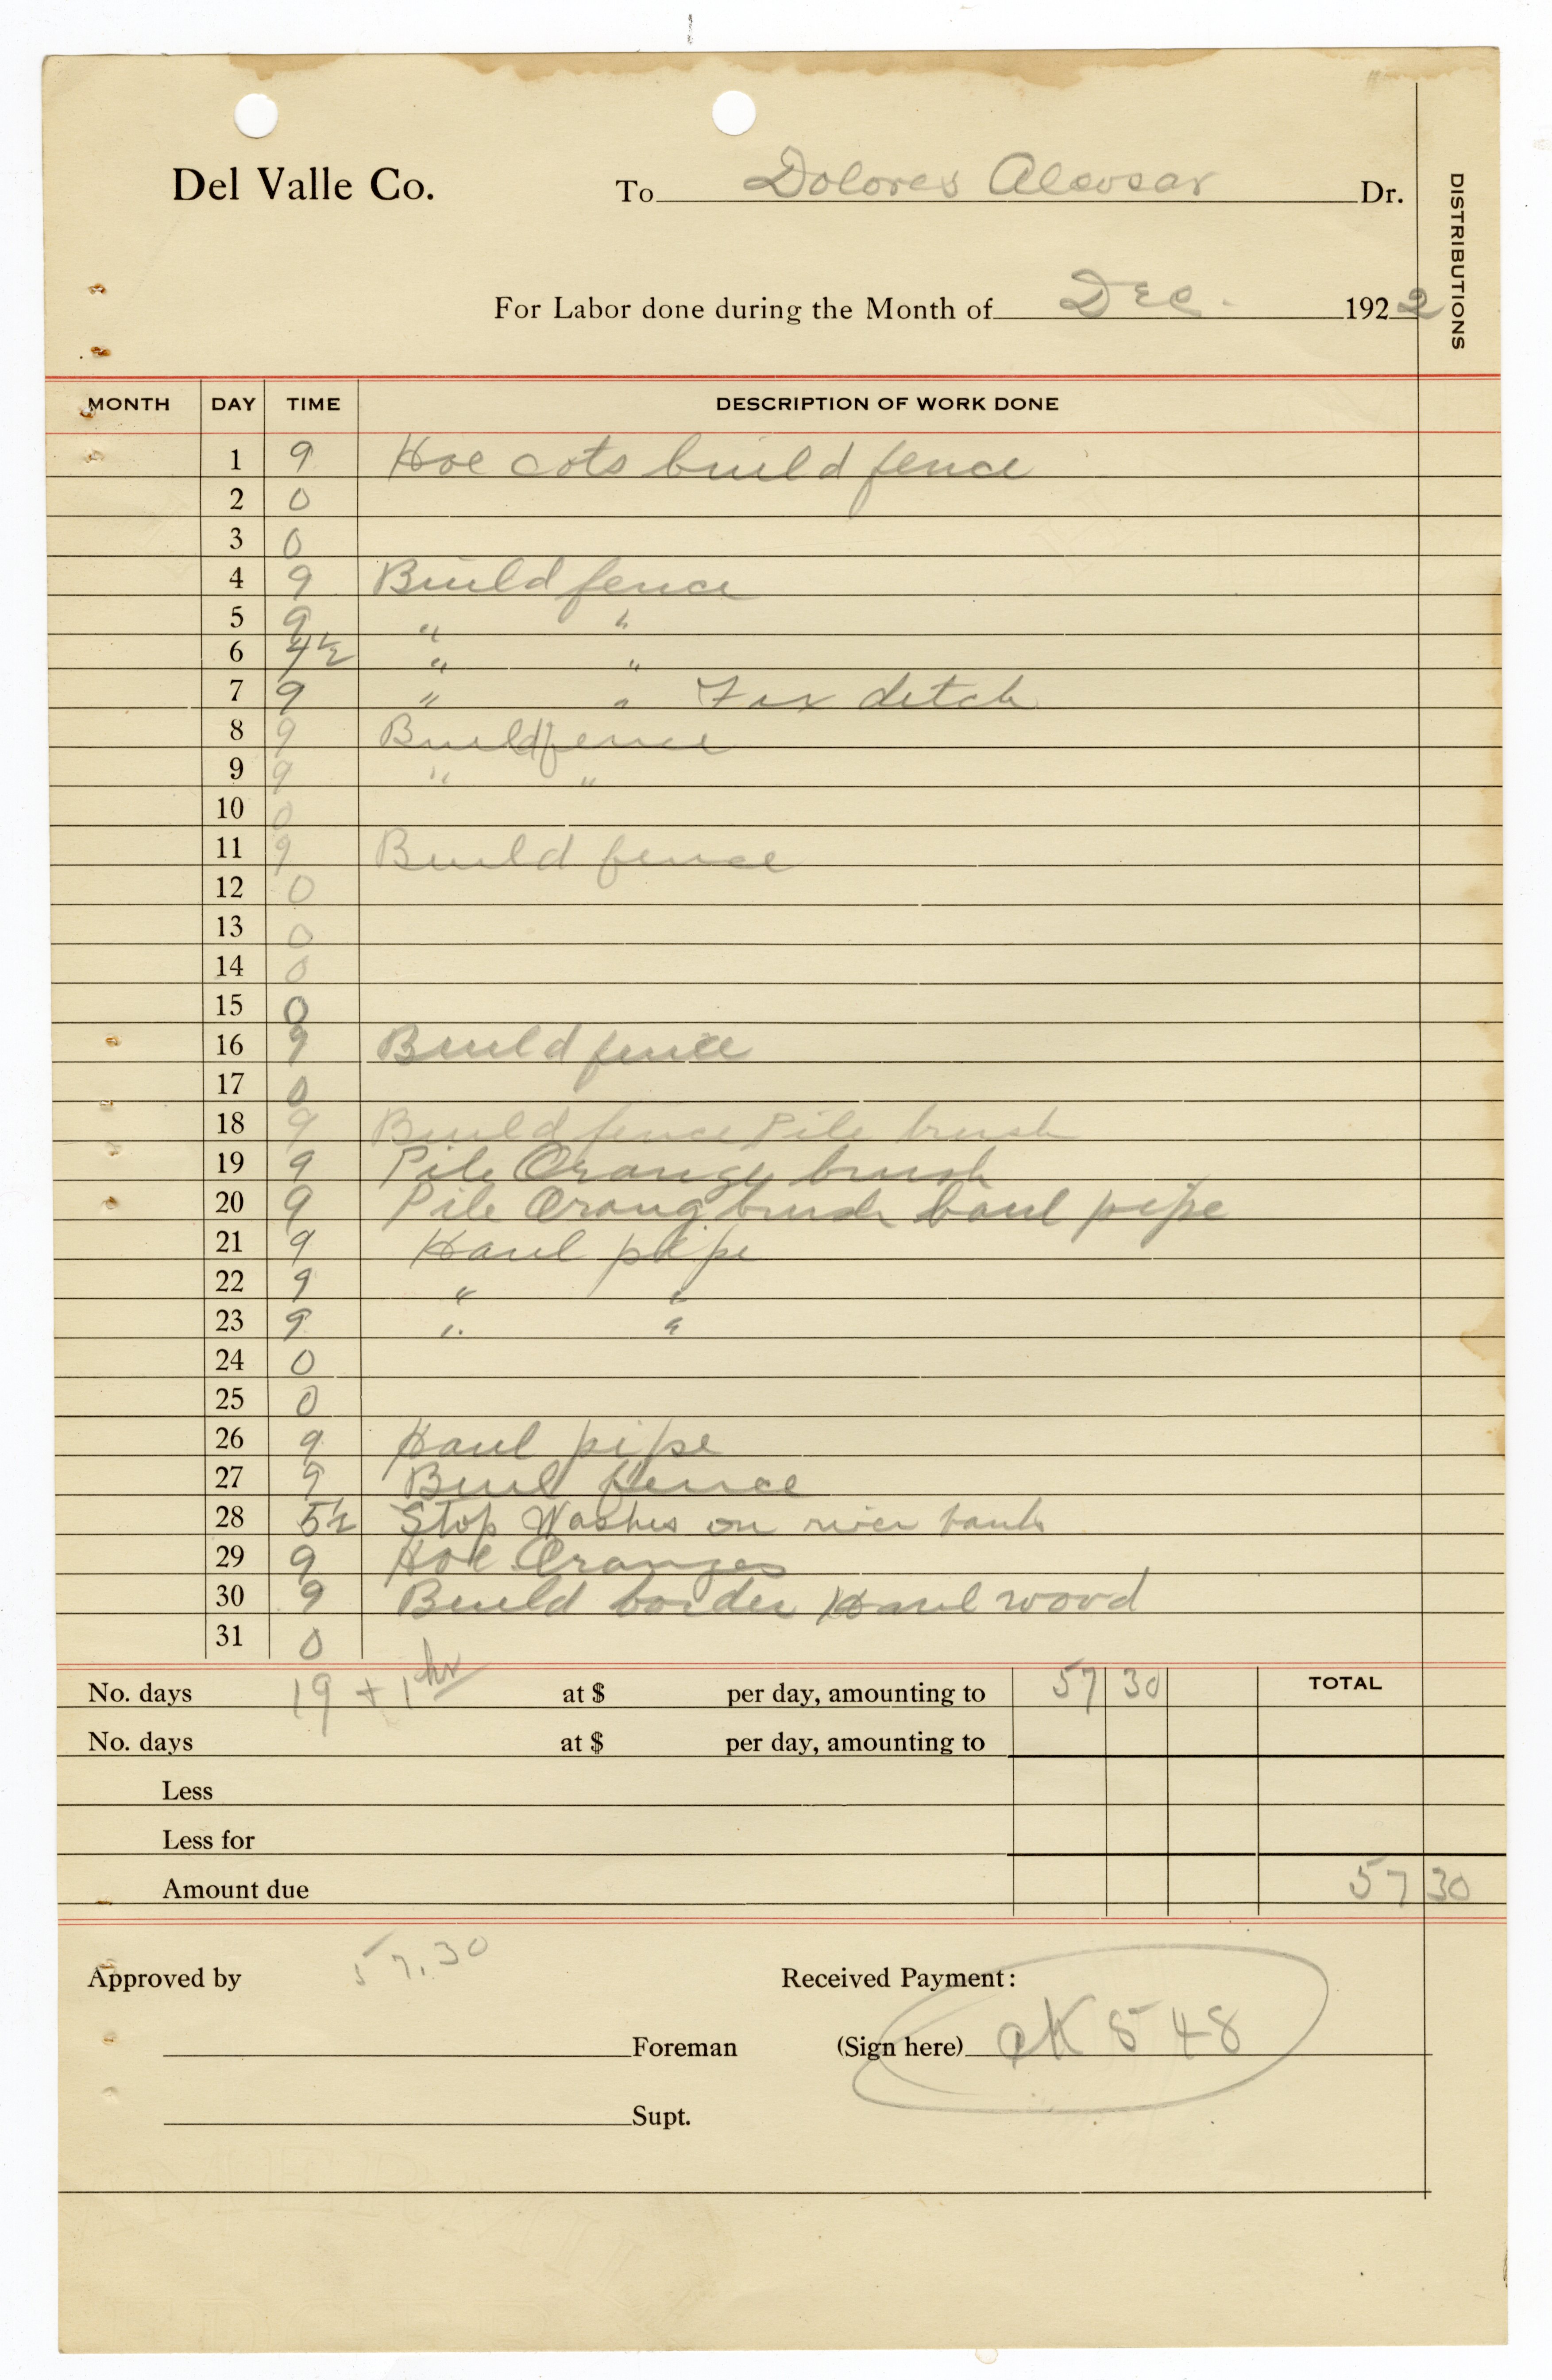 Del Valle Co.
To Dolores Alcosar Dr.
DISTRIBUTIONS
For Labor done during the Month of Dec. 1922
MONTH DAY TIME DESCRIPTION OF WORK DONE
1 9 Hoe cots build fence
2 0
3 0
4 9 Build fence
5 9 " "
6 4½ " "
7 9 " " Fix ditch
8 9 Build fence
9 9 " "
10 0
11 9 Build fence
12 0
13 0
14 0
15 0
16 9 Build fence
17 0
18 9 Build fence Pile brush
19 9 Pile Orange brush
20 9 Pile Orang brush haul pipe
21 9 Haul pipe
22 9 " "
23 9 " "
24 0
25 0
26 9 Haul pipe
27 9 Buil fence
28 5½ Stop Washes on river bank
29 9 Hoe Oranges
30 9 Build border Haul wood
31 0
No. days 19 + 1 hr at $ per day, amounting to 57 30 TOTAL
No. days at $ per day, amounting to
Less
Less for
Amount due 57 30
Approved by 57.30 Received Payment:
Foreman (Sign here) CK 548
Supt.